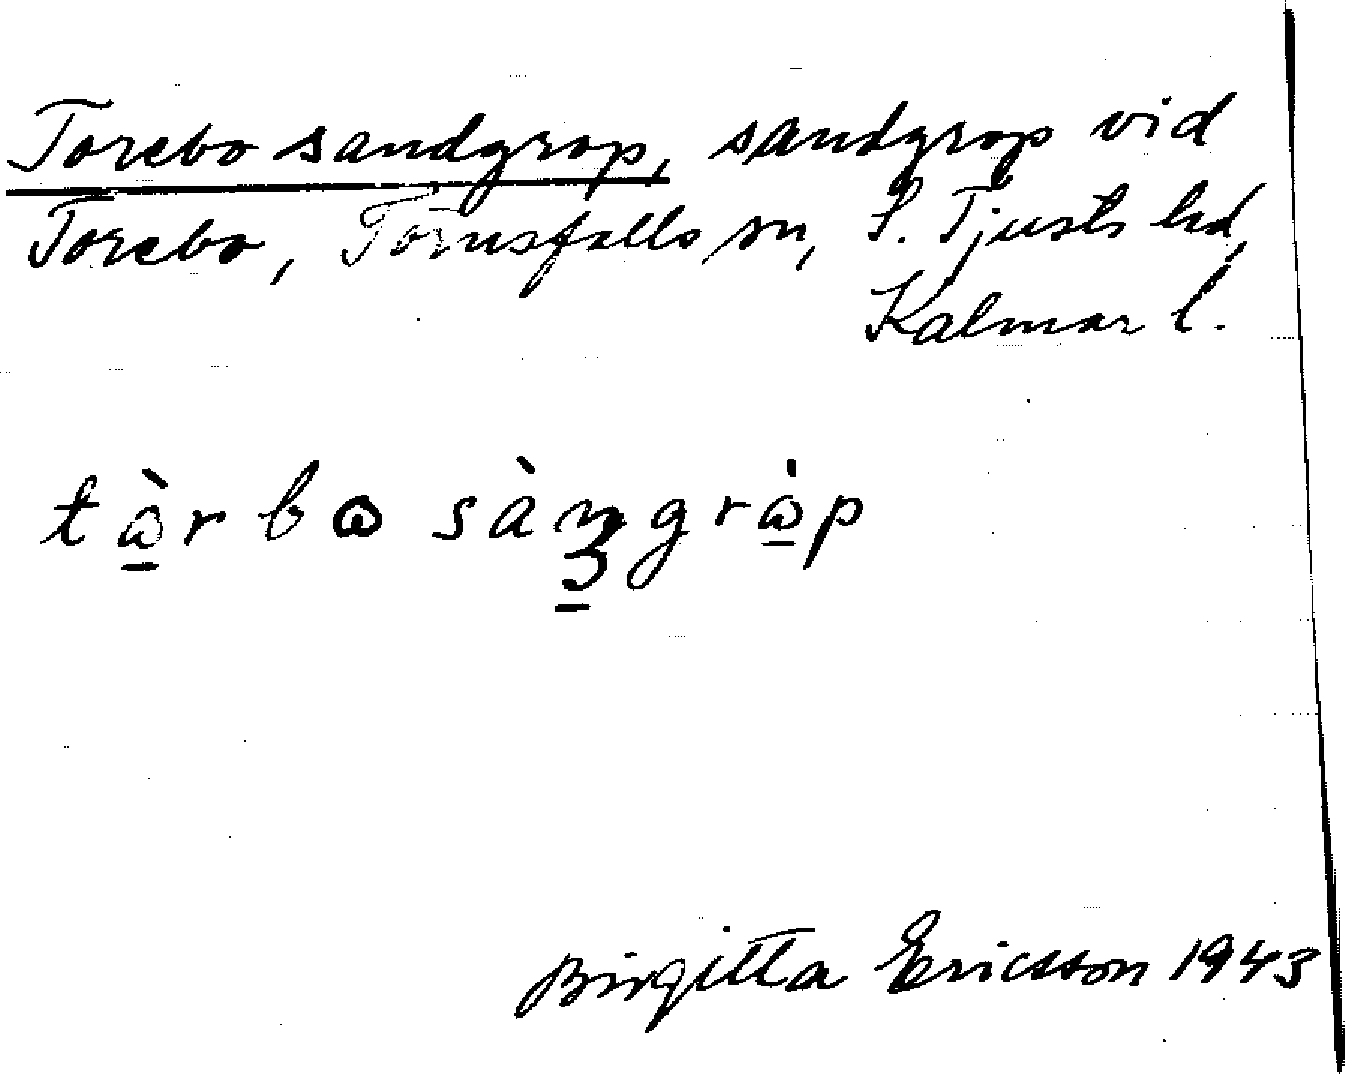 Torebo sandgrop, sandgrop vid
Torebo, Törnsfalls sn, S. Tjusts hd,
Kalmar l.
Birgitta Ericsson 1943